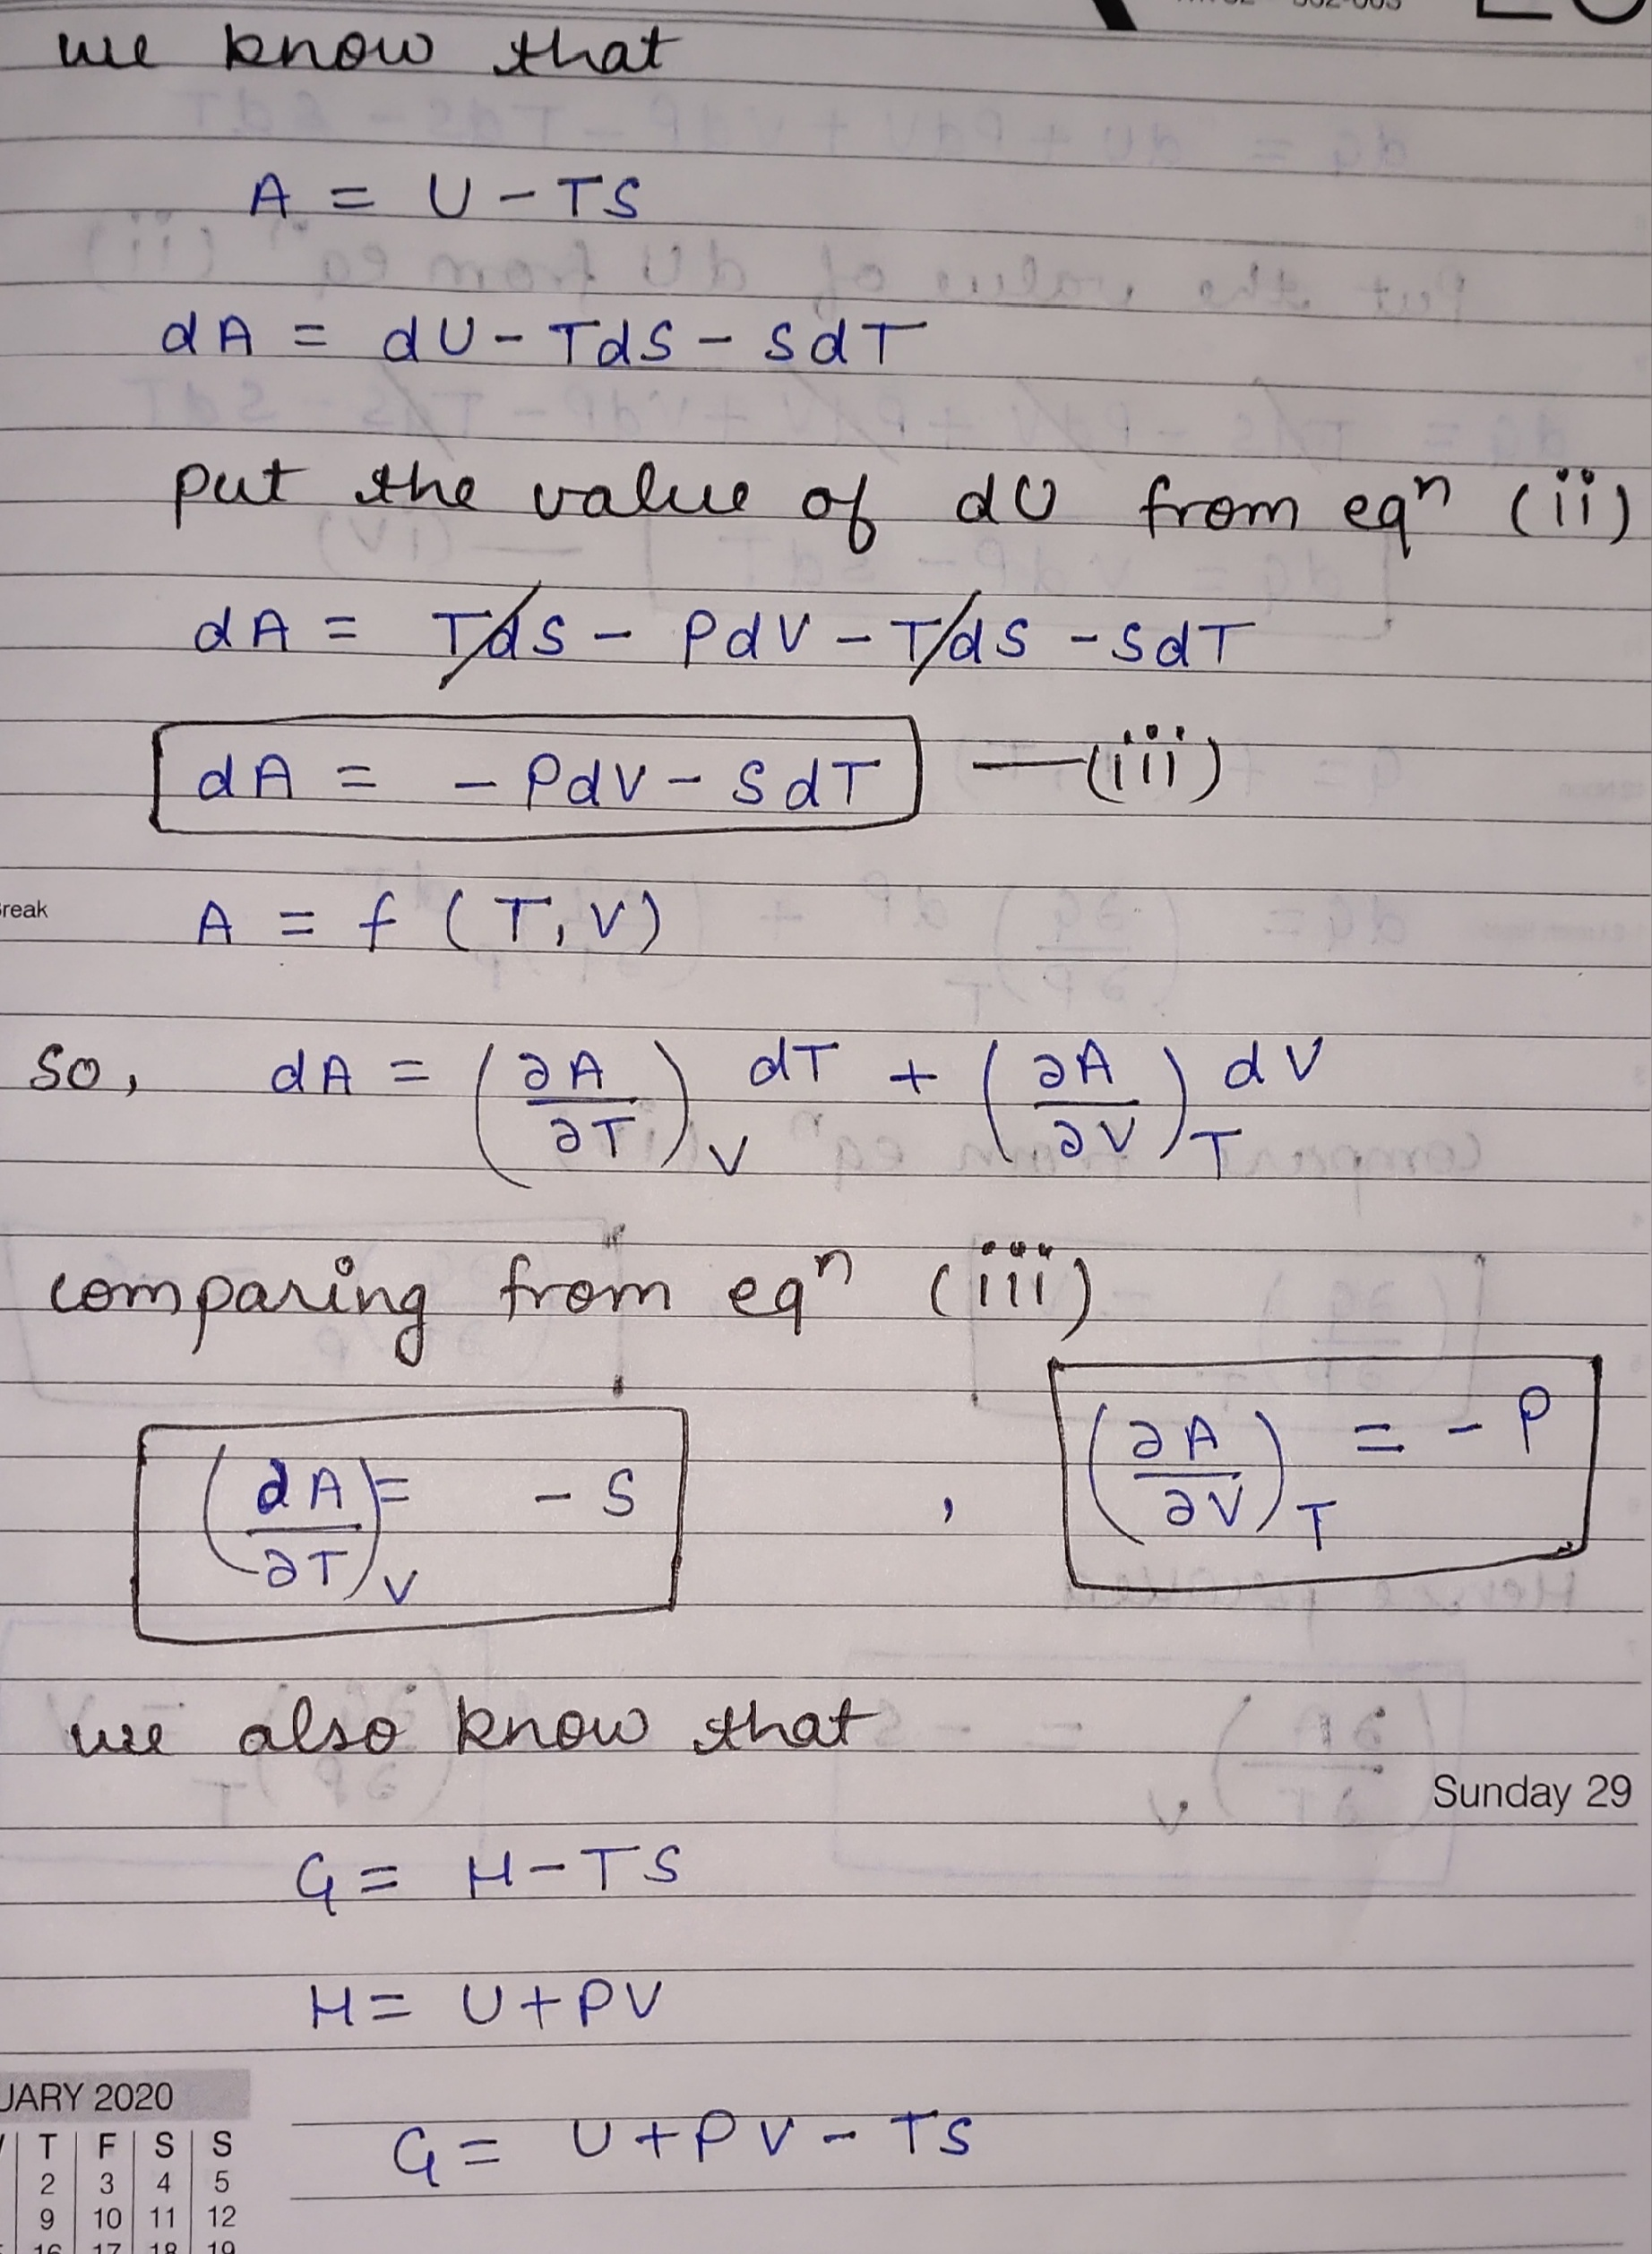 we know that
A = U - TS
dA = dU - TdS - SdT
put the value of dU from eqⁿ (ii)
dA = TdS - PdV - TdS - SdT
dA = - PdV - SdT —(iii)
reak
A = f (T, V)
So, dA = (∂A/∂T)_V dT + (∂A/∂V)_T dV
comparing from eqⁿ (iii)
(∂A/∂T)_V = - S , (∂A/∂V)_T = - P
we also know that
Sunday 29
G = H - TS
H = U + PV
UARY 2020
G = U + PV - TS
T F S S
2 3 4 5
9 10 11 12
16 17 18 19